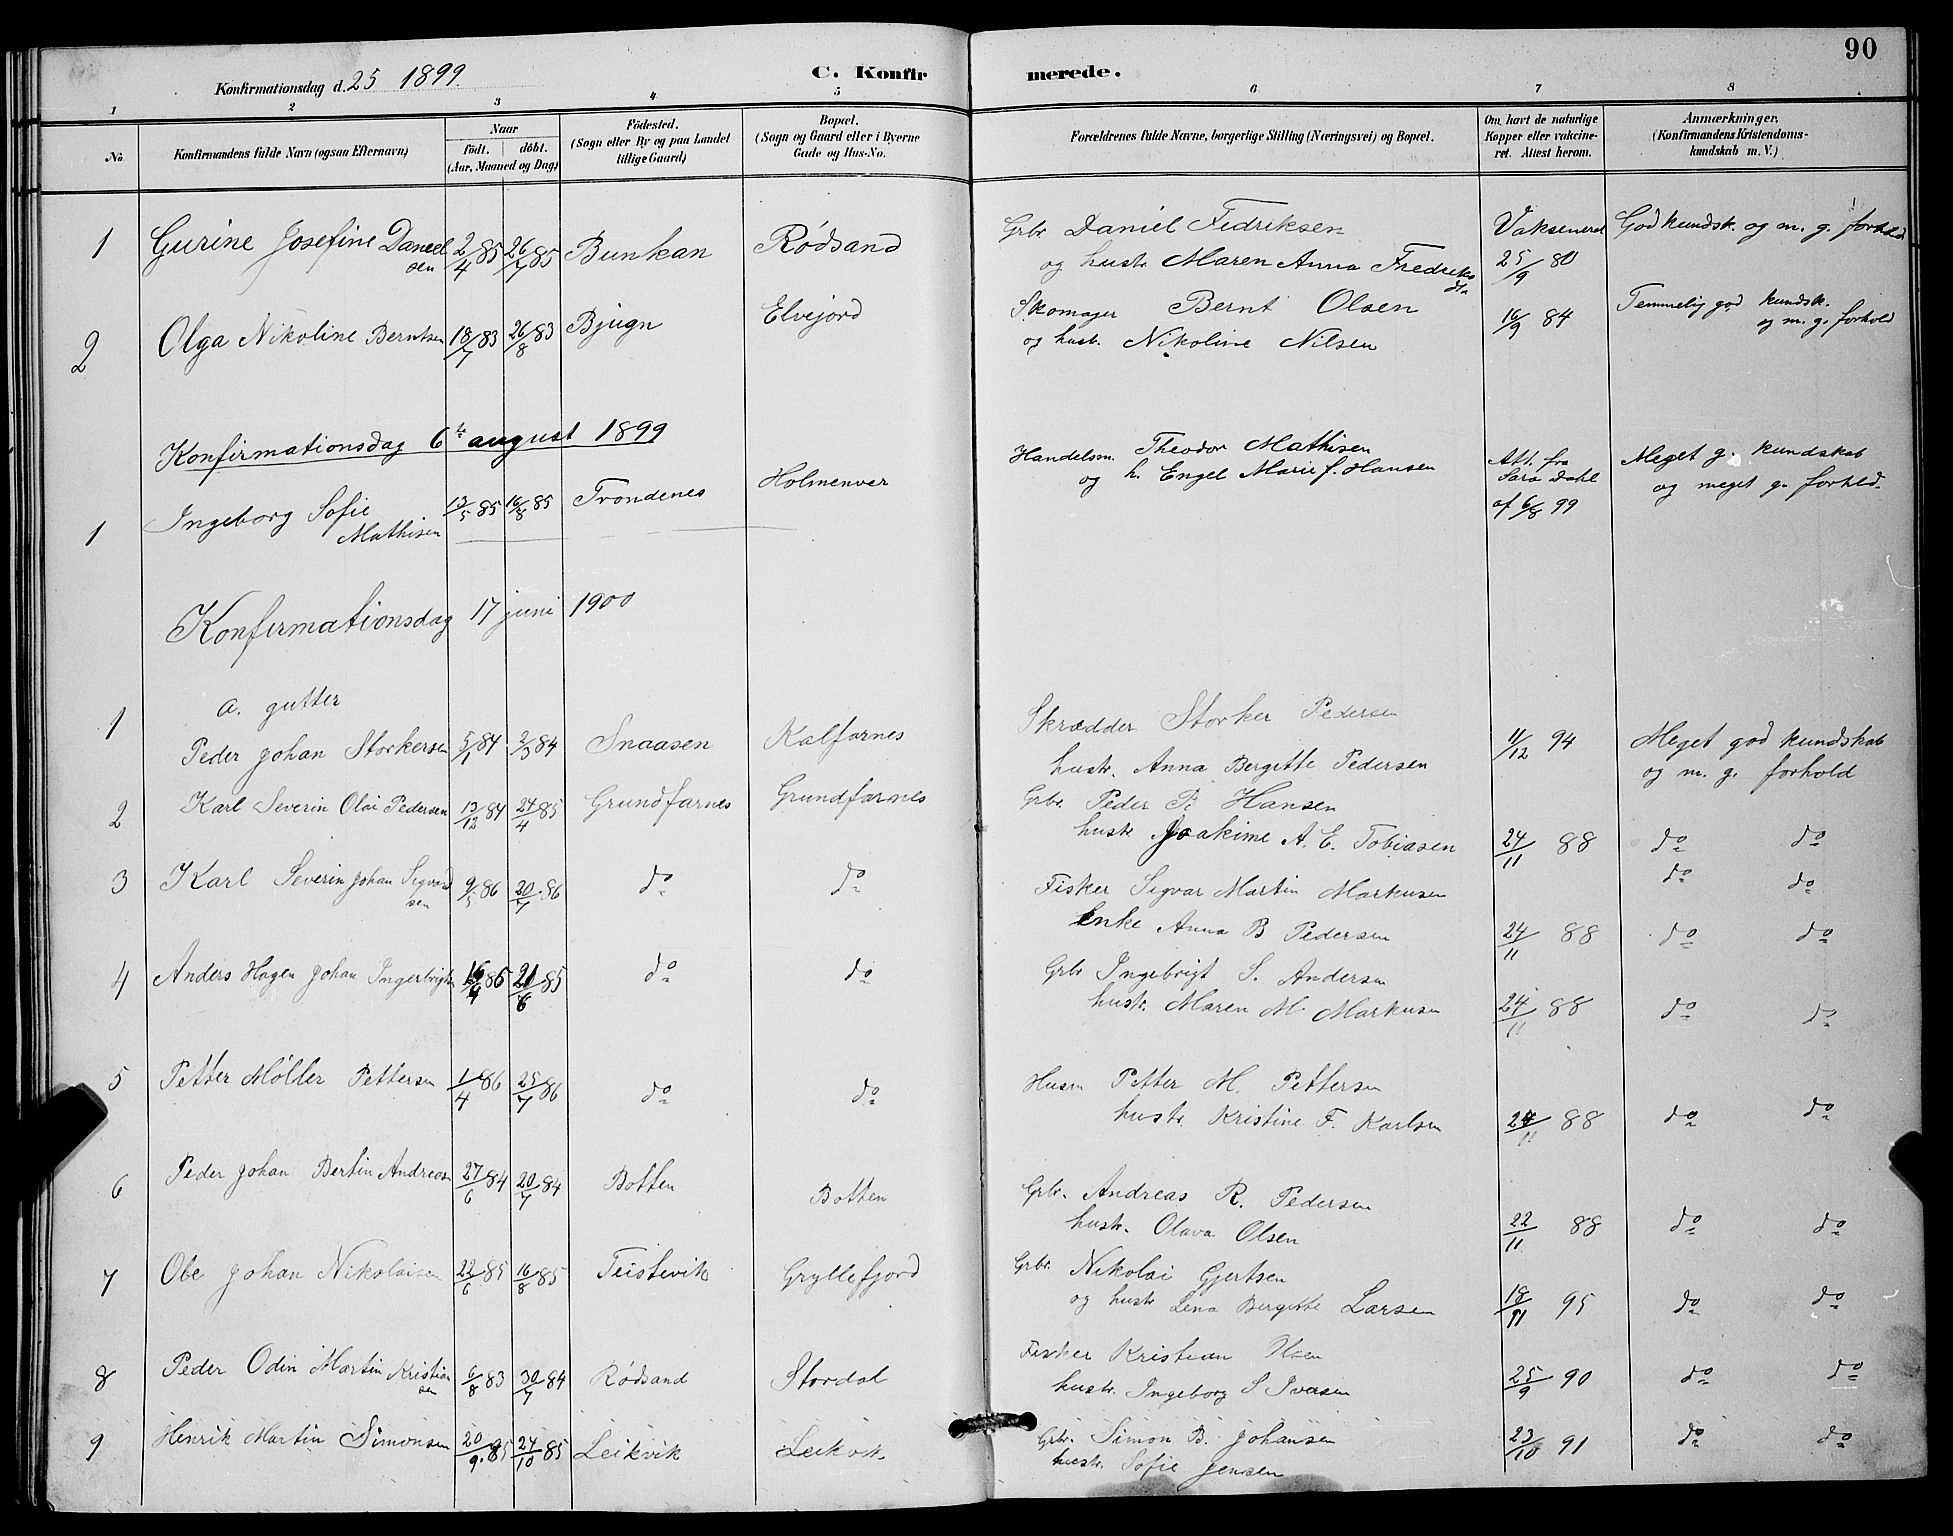 90
Konfirmationsdag d. 25 1899.
C. Konfirmerede.
1 2 3 4 5 6 7 8
No.
Konfirmandens fulde Navn (ogsaa Efternavn)
Naar
født. døbt.
(Aar, Maaned og Dag)
Fødested.
(Sogn eller By og paa Landet
tillige Gaard)
Bopæl.
(Sogn og Gaard eller i Byerne
Gade og Hus-No.
Forældrenes fulde Navne, borgerlige Stilling (Næringsvei) og Bopæl.
Om havt de naturlige
Kopper eller vakcine-
ret. Attest herom.
Anmærkninger.
(Konfirmandens Kristendoms-
kundskab m. V.)
1 Gurine Josefine Daniel 2/4 85 26/7 85 Bunkan Rødsand Grbr Daniel Fedriksen Vaksenered God kundsk. og m. g. forhold
sen og hustr. Maren Anna Fredriks 25/9 80
dtr
2 Olga Nikoline Berntsen 18/7 83 26/8 83 Bjugn Elvejord Skomager Bernt Olsen 16/9 84 Temmelig god kundsk.
og hustr. Nikoline Nilsen og m. g. forhold
Konfirmationsdag 6te august 1899
1 Ingeborg Sofie 13/5 85 16/8 85 Trondenes Holmenver Handelsm. Theodor Mathisen Att. fra Meget g. kundskab
Mathisen og h. Engel Marie f. Hansen Sara Dahl og meget g. forhld.
af 6/8 99
Konfirmationsdag 17 juni 1900
a. gutter
1 Peder Johan Storkersen 5/1 84 2/3 84 Snaasen Kalfarnes Skrædder Storker Pedersen 11/12 94 Meget god kundskab
hustr. Anna Bergitte Pedersen og m. g. forhold
2 Karl Severin Olai Pedersen 13/12 84 24/4 85 Grundfarnes Grundfarnes Grbr. Peder P. Hansen
hustr Joakime A. E. Tobiasen 24/11 88 do do
3 Karl Severin Johan Sigvard 9/5 86 20/7 86 do do Fisker Sigvar Martin Markusen do do
sen Enke Anna B Pedersen 24/11 88 do do
4 Anders Hagen Johan Ingebrigtsen 86 21/6 85 do do Grbr Ingebrigt S. Andersen
hustr. Maren M Markusen 24/11 88 do do
5 Petter Möller Pettersen 1/4 86 25/7 86 do do Husm Petter M. Pettersen
hustr. Kristine F. Karlsen 24/11 88 do do
6 Peder Johan Bertin Andreasen 27/6 84 20/7 84 Botten Botten Grbr. Andreas R. Pedersen
hustr. Olava Olsen 22/11 88 do do
7 Ole Johan Nikolaisen 22/6 85 16/8 85 Teistevik Gryllefjord Grbr. Nikolai Gjertsen
og hustr Lena Bergitte Larsen 18/11 95 do do
8 Peder Odin Martin Kristian 6/8 83 30/7 84 Rødsand Stordal Fisker Kristian Olsen
sen hustr. Ingeborg S Iversen 25/9 90 do do
9 Henrik Martin Simonsen 20/9 85 24/10 85 Leikvik Leikvik Grbr. Simon B. Johansen 23/10 91 do do
hustr. Sofie Jensen